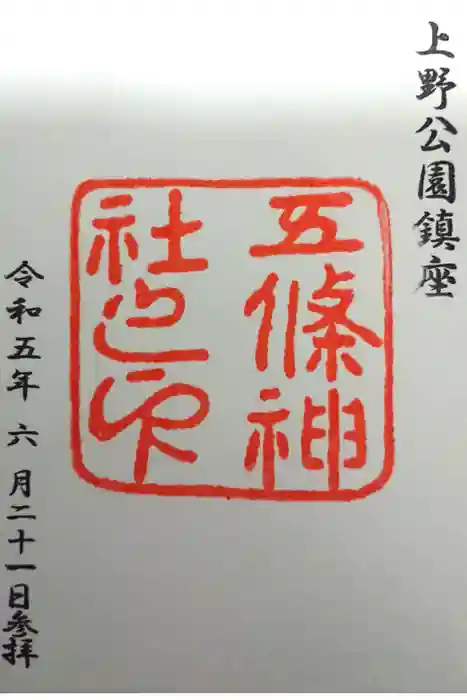 上野公園鎮座
五條神
社之印
令和五年六月二十一日参拝